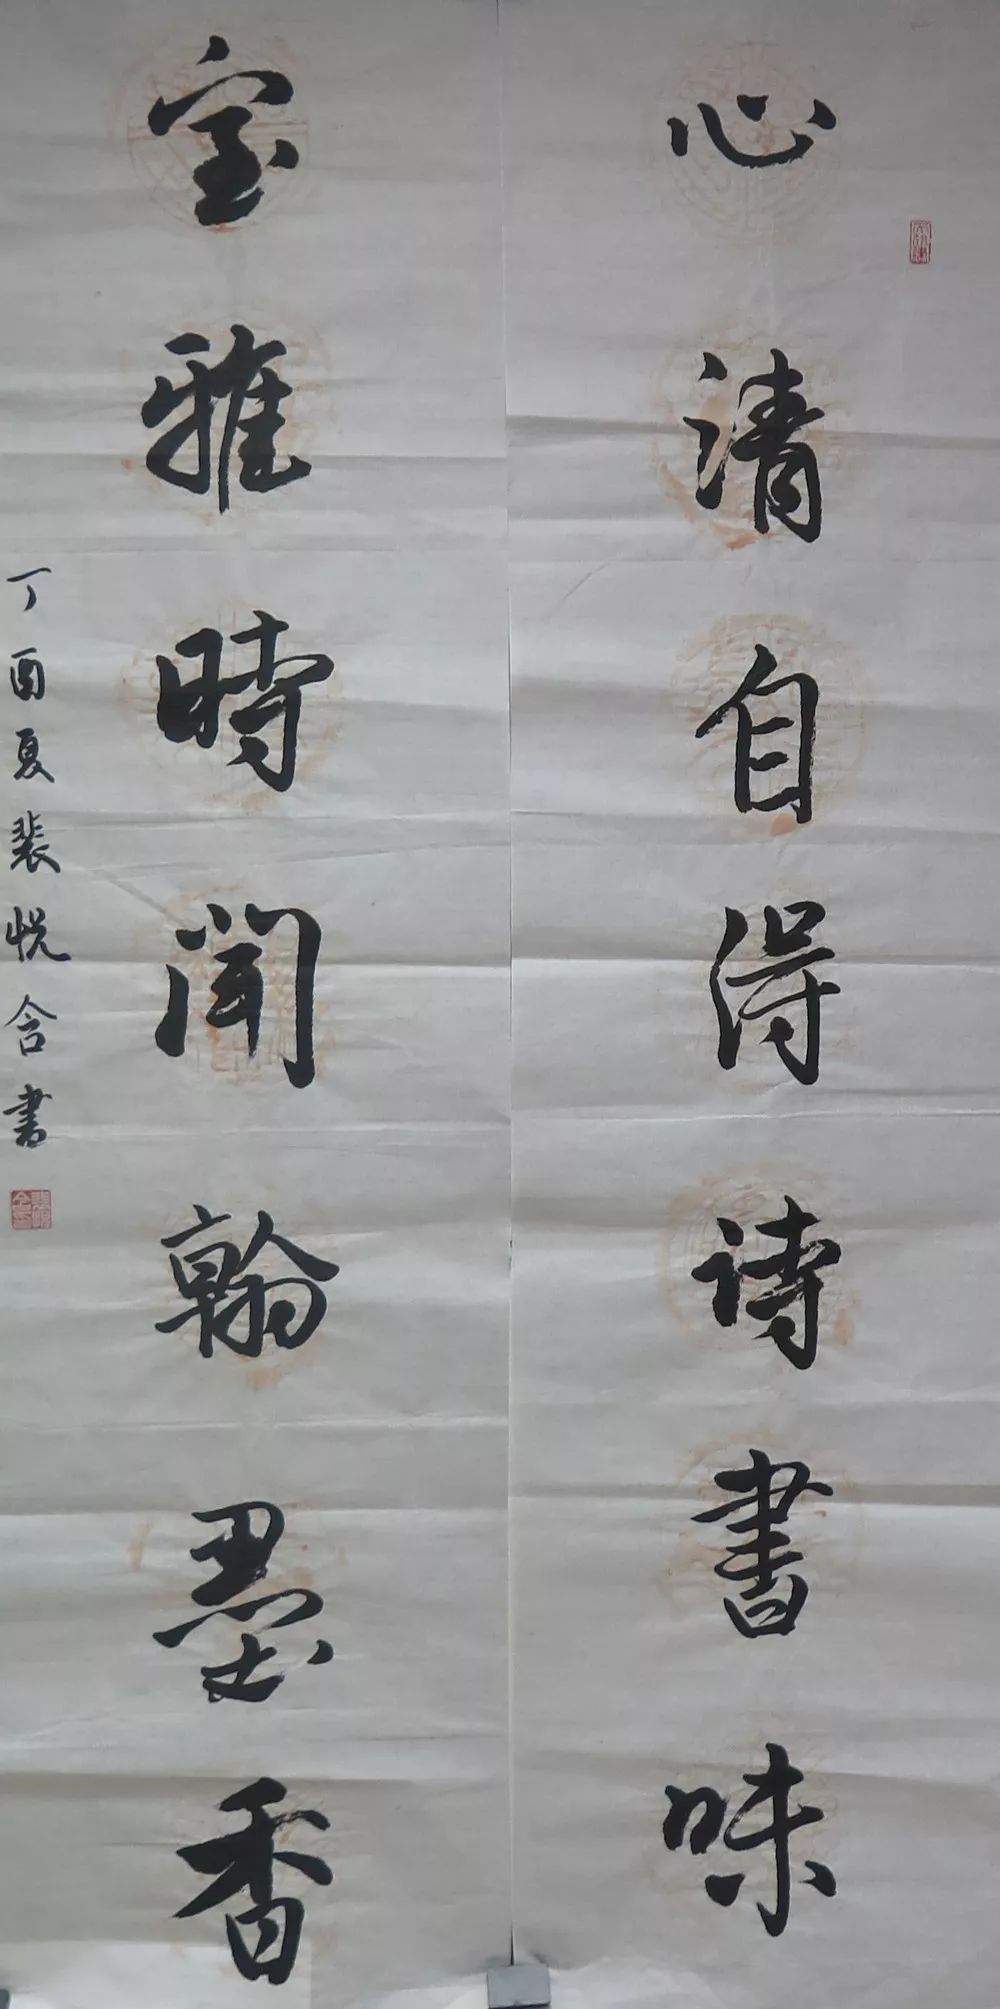 心清自得诗書味
室雅時闻翰墨香
丁酉夏裴悦含書